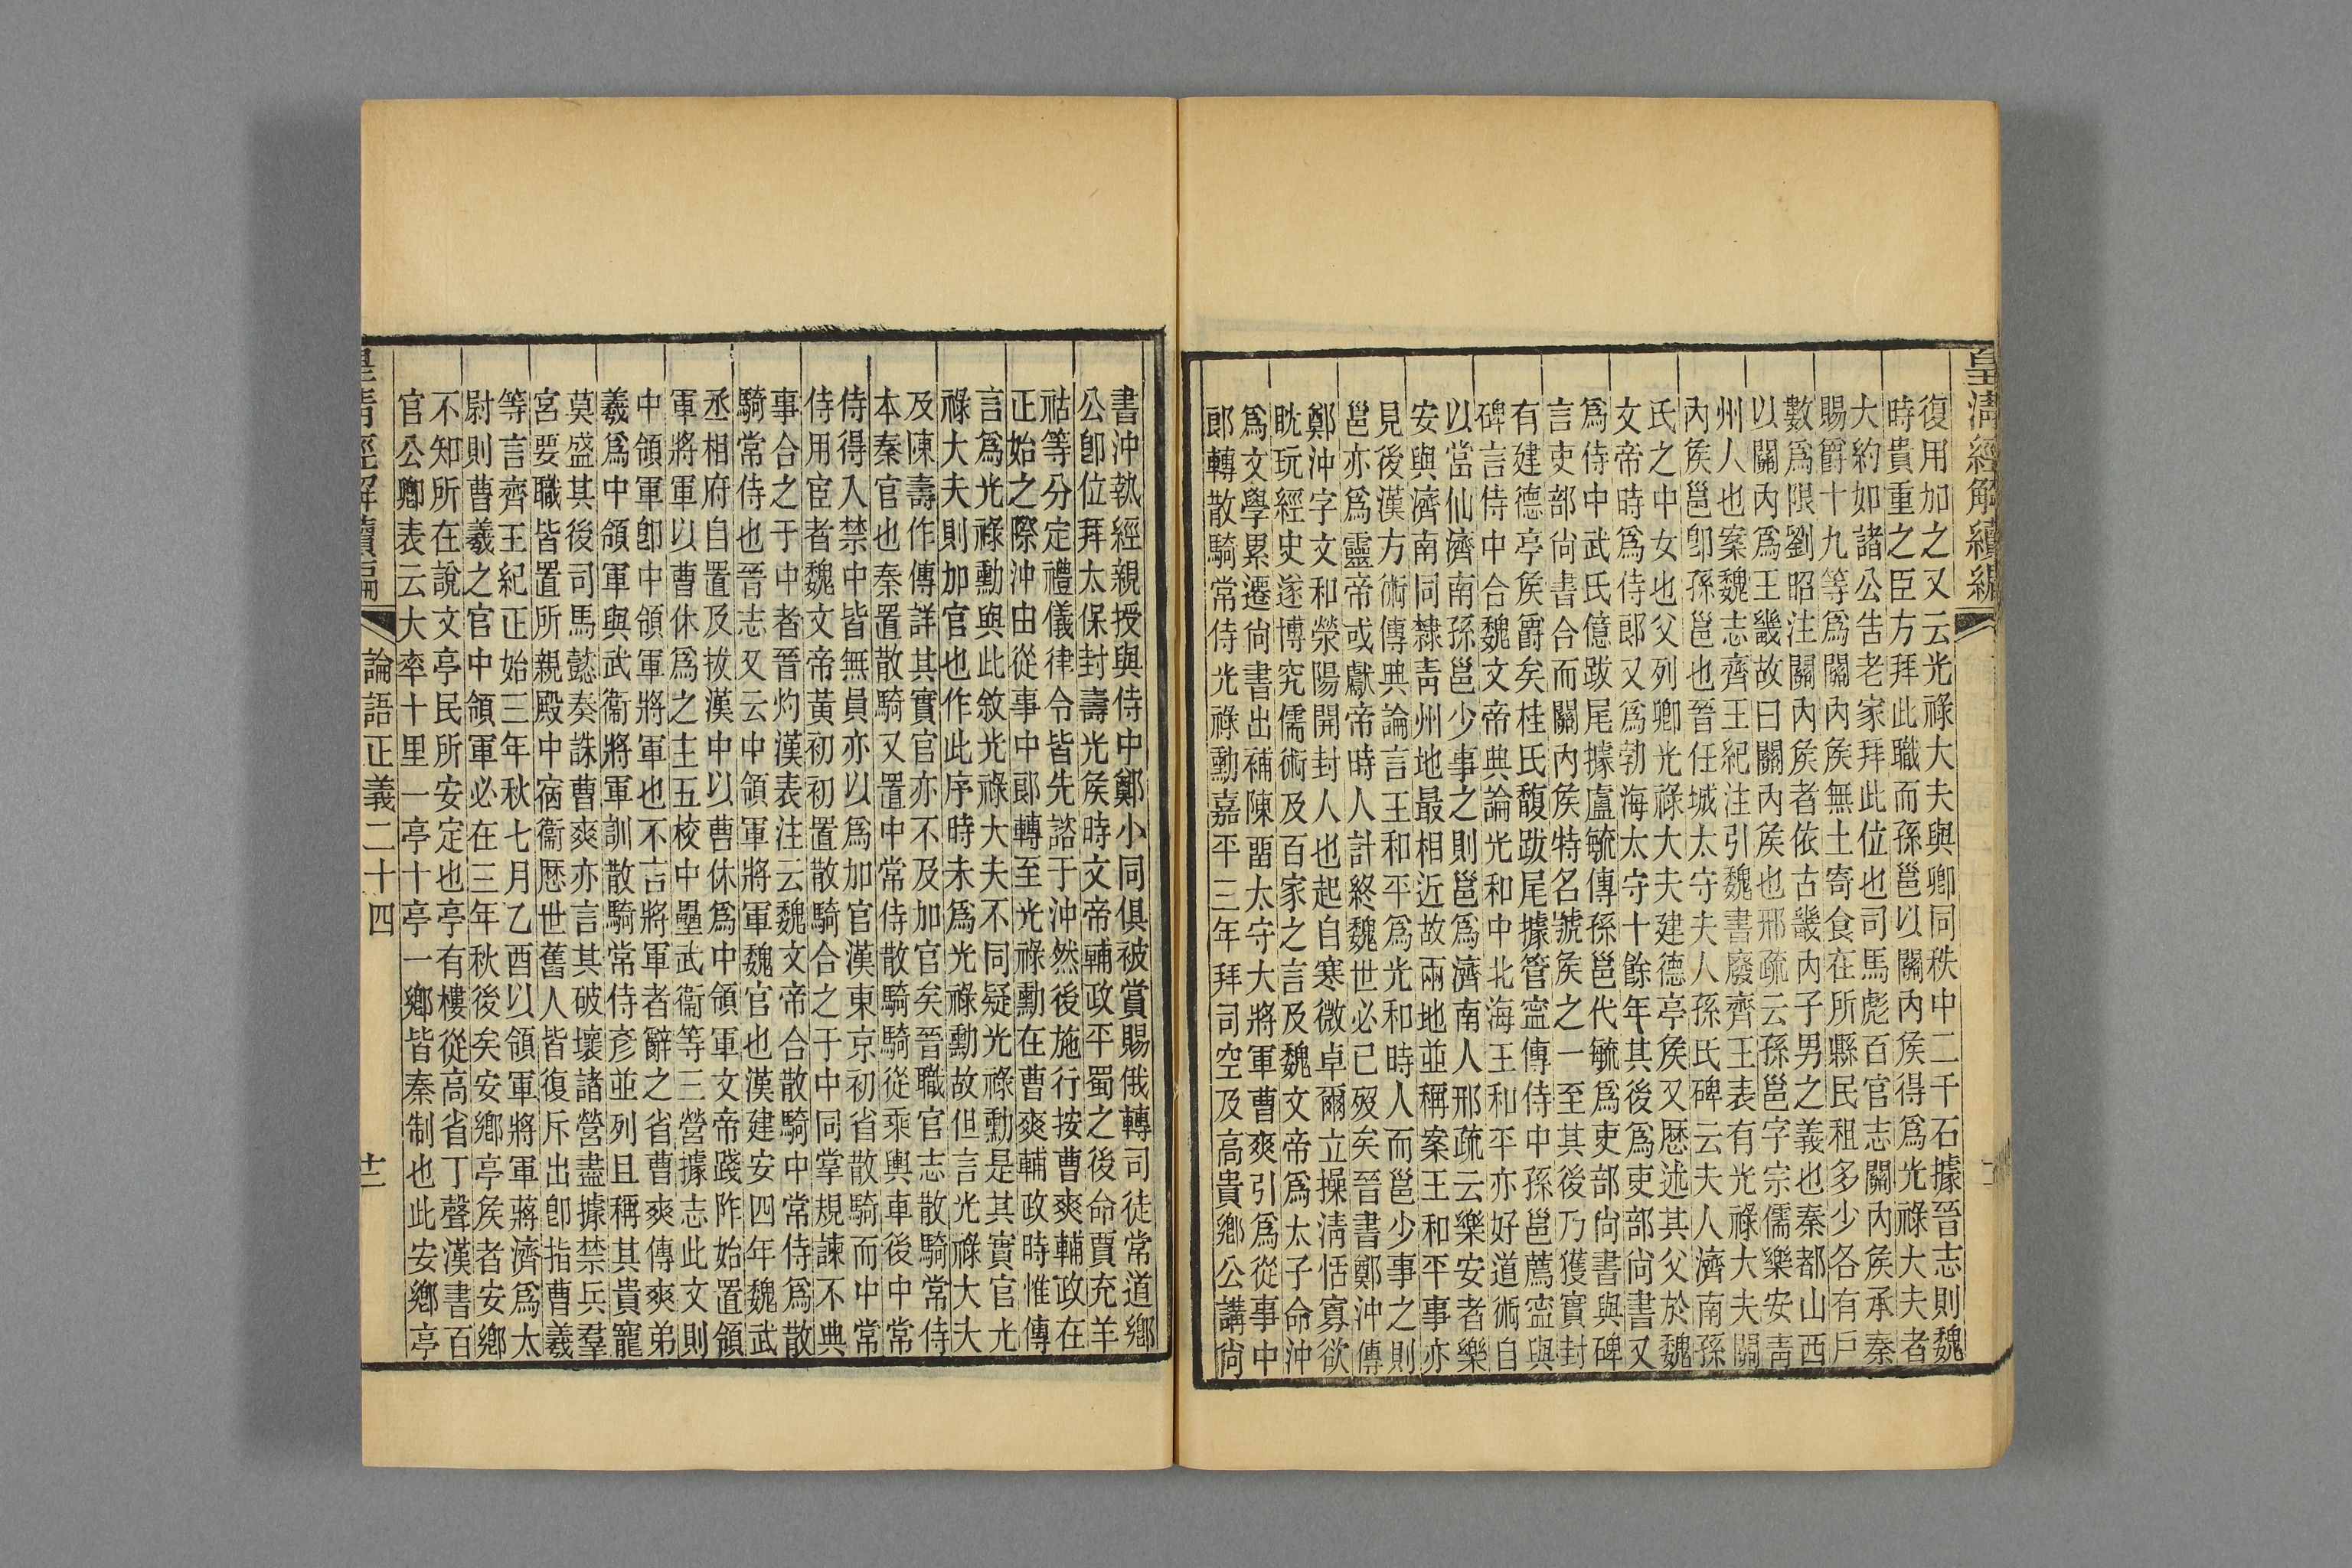 皇清經解續編
復用加之又云光祿大夫與卿同秩中二千石據晉志則魏
時貴重之臣方拜此職而孫邕以關內矦得爲光祿大夫者
大約如諸公告老家拜此位也司馬彪百官志關內矦承秦
賜爵十九等爲關內矦無土寄食在所縣民租多少各有戶
數爲限劉昭注關內矦者依古畿內子男之義也秦都山西
以關內爲王畿故曰關內矦也邢疏云孫邕字宗儒樂安靑
州人也案魏志齊王紀注引魏書廢齊王表有光祿大夫關
內矦邕卽孫邕也晉任城太守夫人孫氏碑云夫人濟南孫
氏之中女也父列卿光祿大夫建德亭矦又歴述其父於魏
文帝時爲侍郎又爲勃海太守十餘年其後爲吏部尙書又
爲侍中武氏億跋尾據盧毓傳孫邕代毓爲吏部尙書與碑
言吏部尙書合而關內矦特名號矦之一至其後乃獲實封
有建德亭矦爵矣桂氏馥跋尾據管寍傳侍中孫邕薦寍與
碑言侍中合魏文帝典論光和中北海王和平亦好道術自
以當仙濟南孫邕少事之則邕爲濟南人邢疏云樂安者樂
安與濟南同隸靑州地最相近故兩地並稱案王和平事亦
見後漢方術傳典論言王和平爲光和時人而邕少事之則
邕亦爲靈帝或獻帝時人計終魏世必已歿矣晉書鄭沖傳
鄭沖字文和榮陽開封人也起自寒微卓爾立操淸恬寡欲
眈玩經史遂博究儒術及百家之言及魏文帝爲太子命沖
爲文學累遷尙書出補陳畱太守大將軍曹爽引爲從事中
郎轉散騎常侍光祿勳嘉平三年拜司空及高貴鄉公講尙
書沖執經親授與侍中鄭小同俱被賞賜俄轉司徒常道鄉
公卽位拜太保封壽光矦時文帝輔政平蜀之後命賈充羊
祜等分定禮儀律令皆先諮于沖然後施行按曹爽輔政在
正始之際沖由從事中郎轉至光祿勳在曹爽輔政時惟傳
言爲光祿勳與此敘光祿大夫不同疑光祿勳是其實官光
祿大夫則加官也作此序時未爲光祿勳故但言光祿大夫
及陳壽作傳詳其實官亦不及加官矣晉職官志散騎常侍
本秦官也秦置散騎又置中常侍散騎騎從乘輿車後中常
侍得入禁中皆無員亦以爲加官漢東京初省散騎而中常
侍用宦者魏文帝黃初初置散騎合之于中同掌規諫不典
事合之于中者晉灼漢表注云魏文帝合散騎中常侍爲散
騎常侍也晉志又云中領軍將軍魏官也漢建安四年魏武
丞相府自置及拔漢中以曹休爲中領軍文帝踐阼始置領
軍將軍以曹休爲之主五校中壘武衞等三營據志此文則
中領軍卽中領軍將軍也不言將軍者辭之省曹爽傳爽弟
羲爲中領軍與武衞將軍訓散騎常侍彥並列且稱其貴寵
莫盛其後司馬懿奏誅曹爽亦言其破壞諸營盡據禁兵羣
宮要職皆置所親殿中宿衞歴世舊人皆復斥出卽指曹羲
等言齊王紀正始三年秋七月乙酉以領軍將軍蔣濟爲太
尉則曹羲之官中領軍必在三年秋後矣安鄉亭矦者安鄉
不知所在說文亭民所安定也亭有樓從高省丁聲漢書百
官公卿表云大率十里一亭十亭一鄉皆秦制也此安鄉亭
皇清經解續編
論語正義二十四